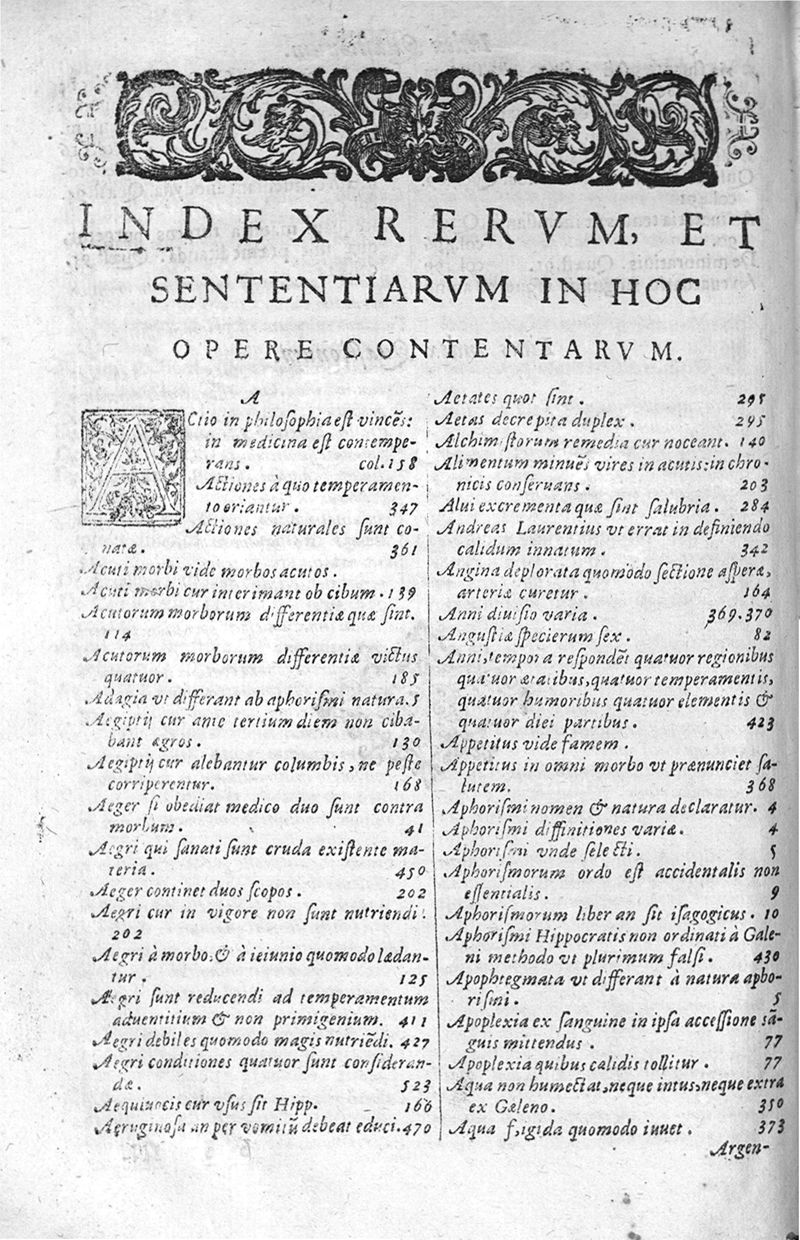 INDEX RERVM, ET
SENTENTIARVM IN HOC
OPERE CONTENTARVM.
A
ACtio in philosophia est vincẽs:
in medicina est contempe-
rans. col. 158
Actiones à quo temperamen-
to oriantur. 347
Actiones naturales sunt co-
natæ. 361
Acuti morbi vide morbos acutos.
Acuti morbi cur interimant ob cibum. 139
Acutorum morborum differentiæ quæ sint.
114
Acutorum morborum differentiæ victus
quatuor. 185
Adagia vt differant ab aphorismi natura. 5
Aegiptij cur ante tertium diem non ciba-
bant ægros. 130
Aegiptij cur alebantur columbis, ne peste
corriperentur. 168
Aeger si obediat medico duo sunt contra
morbum. 41
Aegri qui sanati sunt cruda existente ma-
teria. 450
Aeger continet duos scopos. 202
Aegri cur in vigore non sunt nutriendi.
202
Aegri à morbo, & à ieiunio quomodo lædan-
tur. 125
Aegri sunt reducendi ad temperamentum
aduentitium & non primigenium. 411
Aegri debiles quomodo magis nutriẽdi. 427
Aegri conditiones quatuor sunt consideran-
dæ. 523
Aequiuocis cur vsus sit Hipp. 166
Aeruginosa an per vomitũ debeat educi. 470
Aetates quot sint. 295
Aetas decrepita duplex. 295
Alchimistorum remedia cur noceant. 140
Alimentum minuẽs vires in acutis: in chro-
nicis conseruans. 203
Alui excrementa quæ sint salubria. 284
Andreas Laurentius vt errat in definiendo
calidum innatum. 342
Angina deplorata quomodo sectione asperæ,
arteriæ curetur. 164
Anni diuisio varia. 369.370
Angustiæ specierum sex. 82
Anni, tempora respondẽt quatuor regionibus
quatuor ætatibus, quatuor temperamentis,
quatuor humoribus quatuor elementis &
quatuor diei partibus. 423
Appetitus vide famem.
Appetitus in omni morbo vt prænunciet sa-
lutem. 368
Aphorismi nomen & natura declaratur. 4
Aphorismi diffinitiones variæ. 4
Aphorismi vnde selecti. 5
Aphorismorum ordo est accidentalis non
essentialis. 9
Aphorismorum liber an sit isagogicus. 10
Aphorismi Hippocratis non ordinati à Gale-
ni methodo vt plurimum falsi. 430
Apophtegmata vt differant à natura apho-
rismi. 5
Apoplexia ex sanguine in ipsa accessione sã-
guis mittendus. 77
Apoplexia quibus calidis tollitur. 77
Aqua non humectat, neque intus, neque extra
ex Galeno. 350
Aqua frigida quomodo iuuet. 373
Argen-